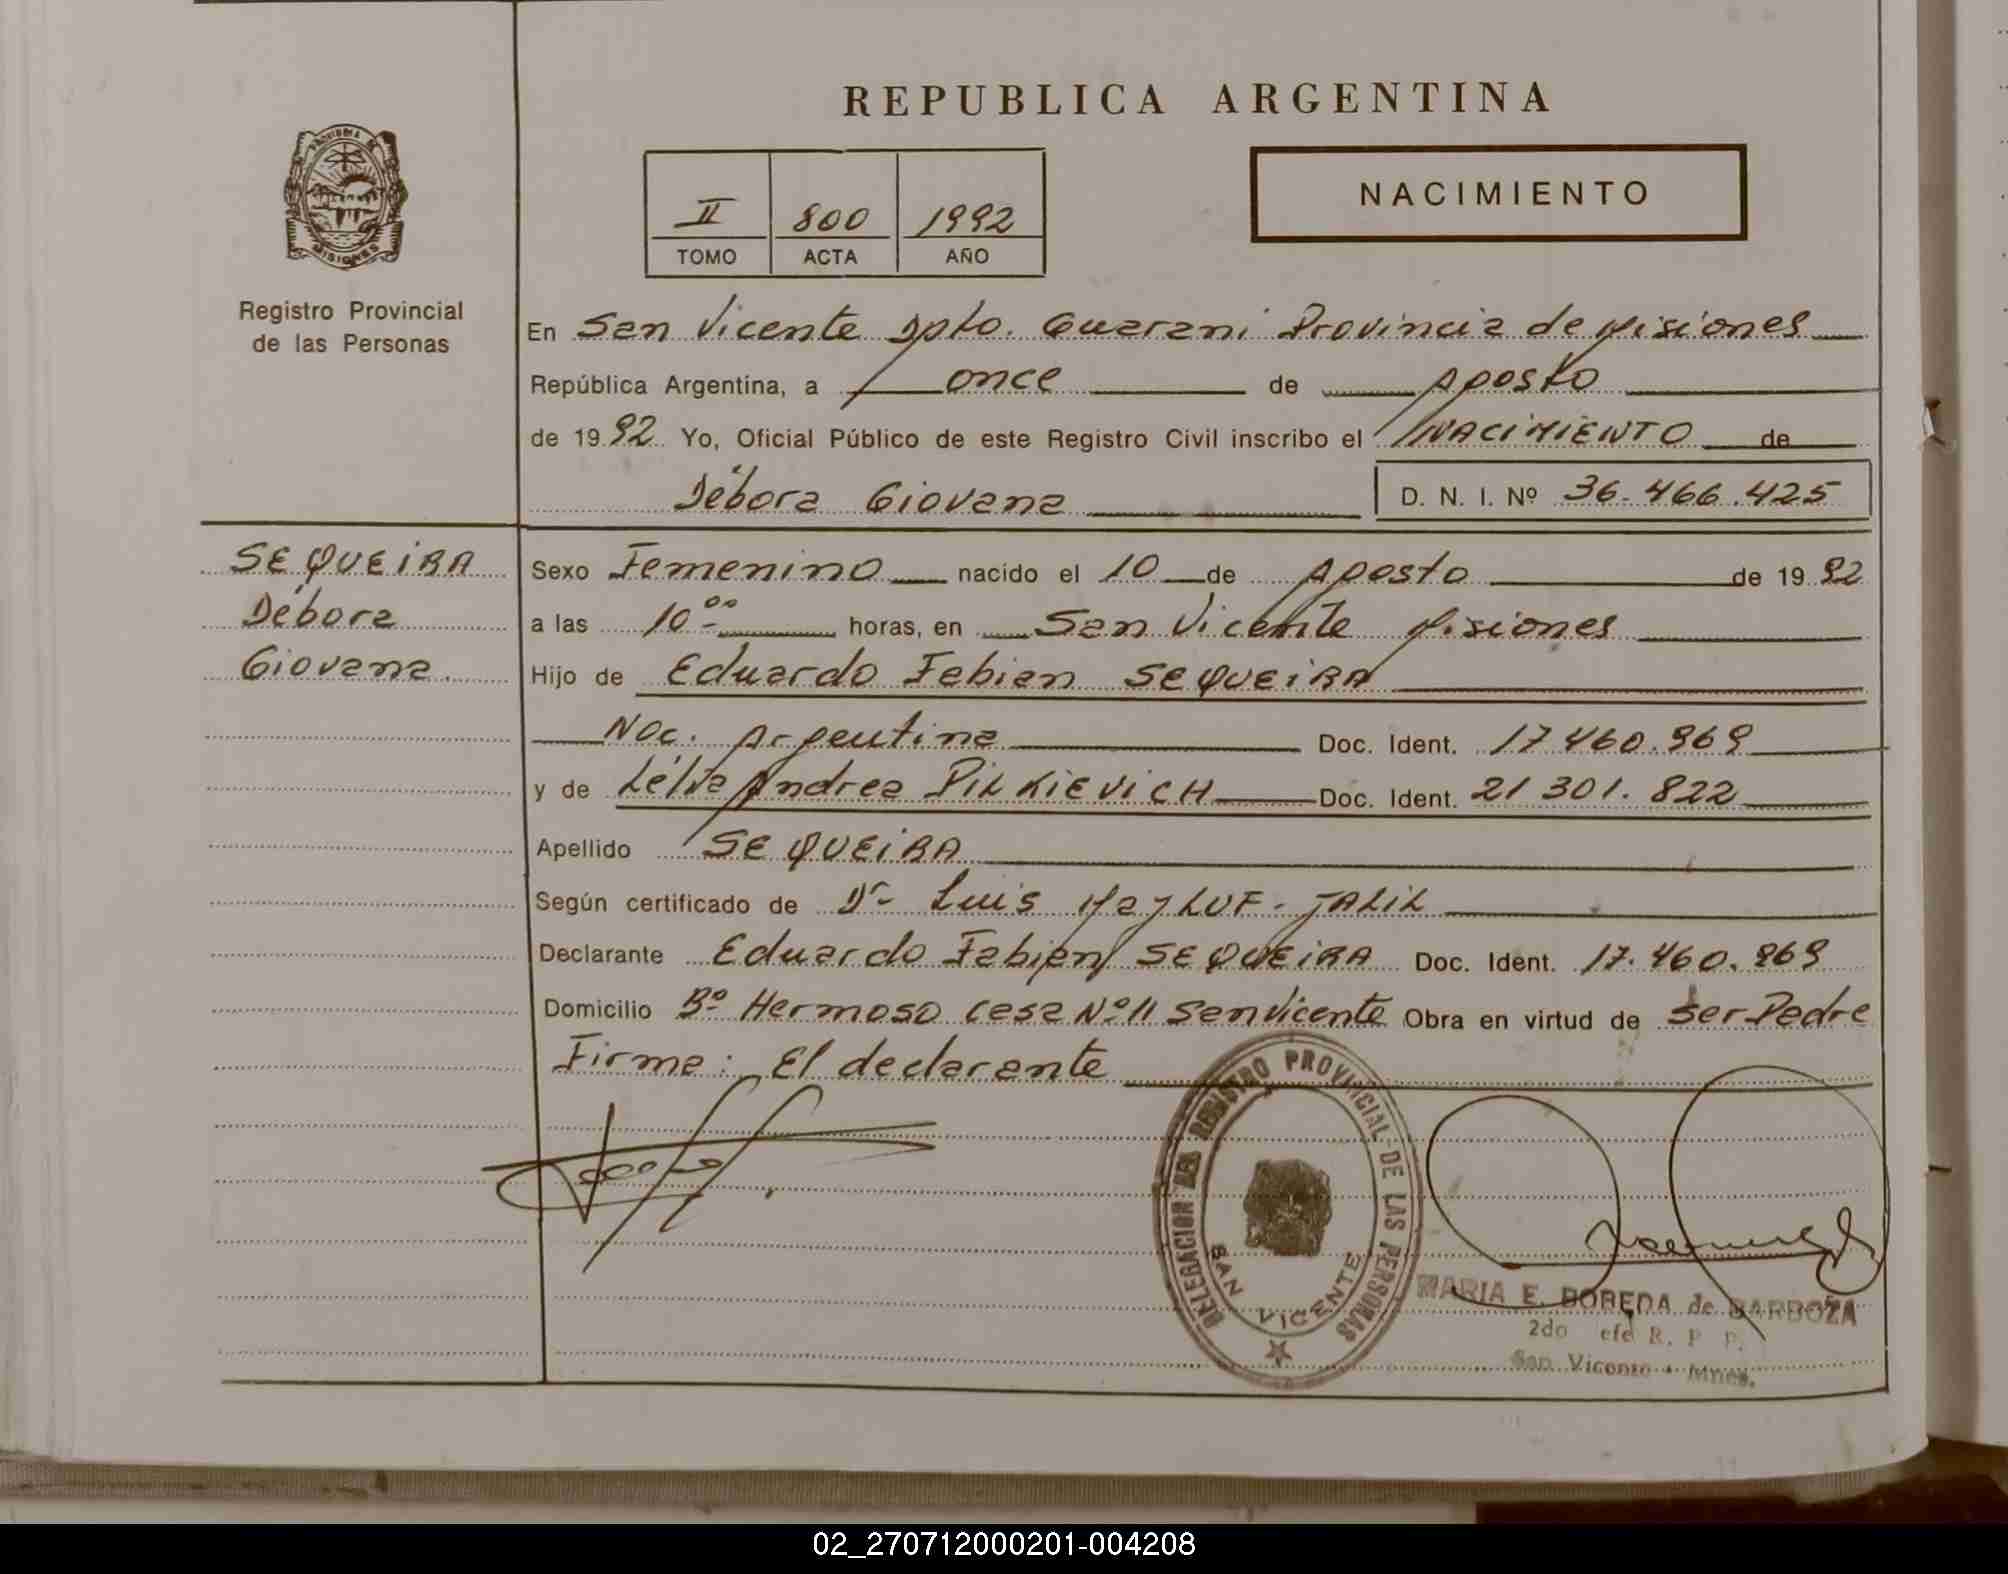 REPUBLICA ARGENTINA
NACIMIENTO
II 800 1992
TOMO ACTA AÑO
PROVINCIA DE
MISIONES
Registro Provincial
de las Personas
En San Vicente Dpto. Guarani Provincia de Misiones
República Argentina, a once de Agosto
de 1992 Yo, Oficial Público de este Registro Civil inscribo el NACIMIENTO de
Débora Giovana D. N. I. Nº 36.466.425
SEQUEIRA
Débora
Giovana.
Sexo Femenino nacido el 10 de Agosto de 1992
a las 10ºº horas, en San Vicente Misiones
Hijo de Eduardo Fabian SEQUEIRA
Nac. Argentina Doc. Ident. 17.460.969
y de Lélia Andrea PILKIEVICH Doc. Ident. 21 301.822
Apellido SEQUEIRA
Según certificado de Dr. Luis MayLUF-JALIL
Declarante Eduardo Fabian SEQUEIRA Doc. Ident. 17.460.969
Domicilio Bº Hermoso casa Nº 11 San Vicente Obra en virtud de ser Padre
Firma: El declarante
DELEGACION DEL REGISTRO PROVINCIAL DE LAS PERSONAS
SAN VICENTE
MARIA E. DOBEDA de BARBOZA
2do efe R. P. P.
San Vicente - Mnes.
02_270712000201-004208